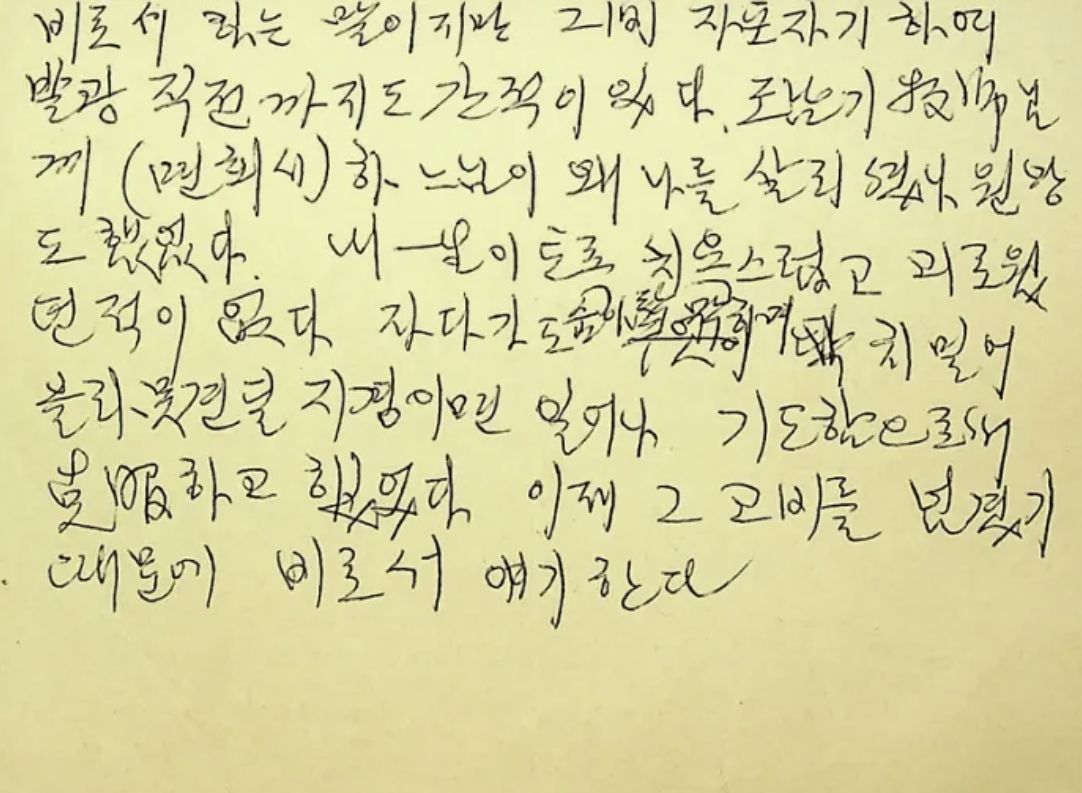 비로서 하는 말이지만 그때 자포자기 하여
발광 직전 까지도 간적이 있다. 기 牧師님
께 (면회시) 하느님이 왜 나를 살리셨나 원망
도 했었다. 내 一生이 도로 치욕스럽고 괴로웠
던 적이 없다 자다가도 숨이 치밀어
올라 못견딜 지경이면 일어나 기도함으로서
克服하고 했었다. 이제 그 고비를 넘겼기
때문에 비로서 얘기한다